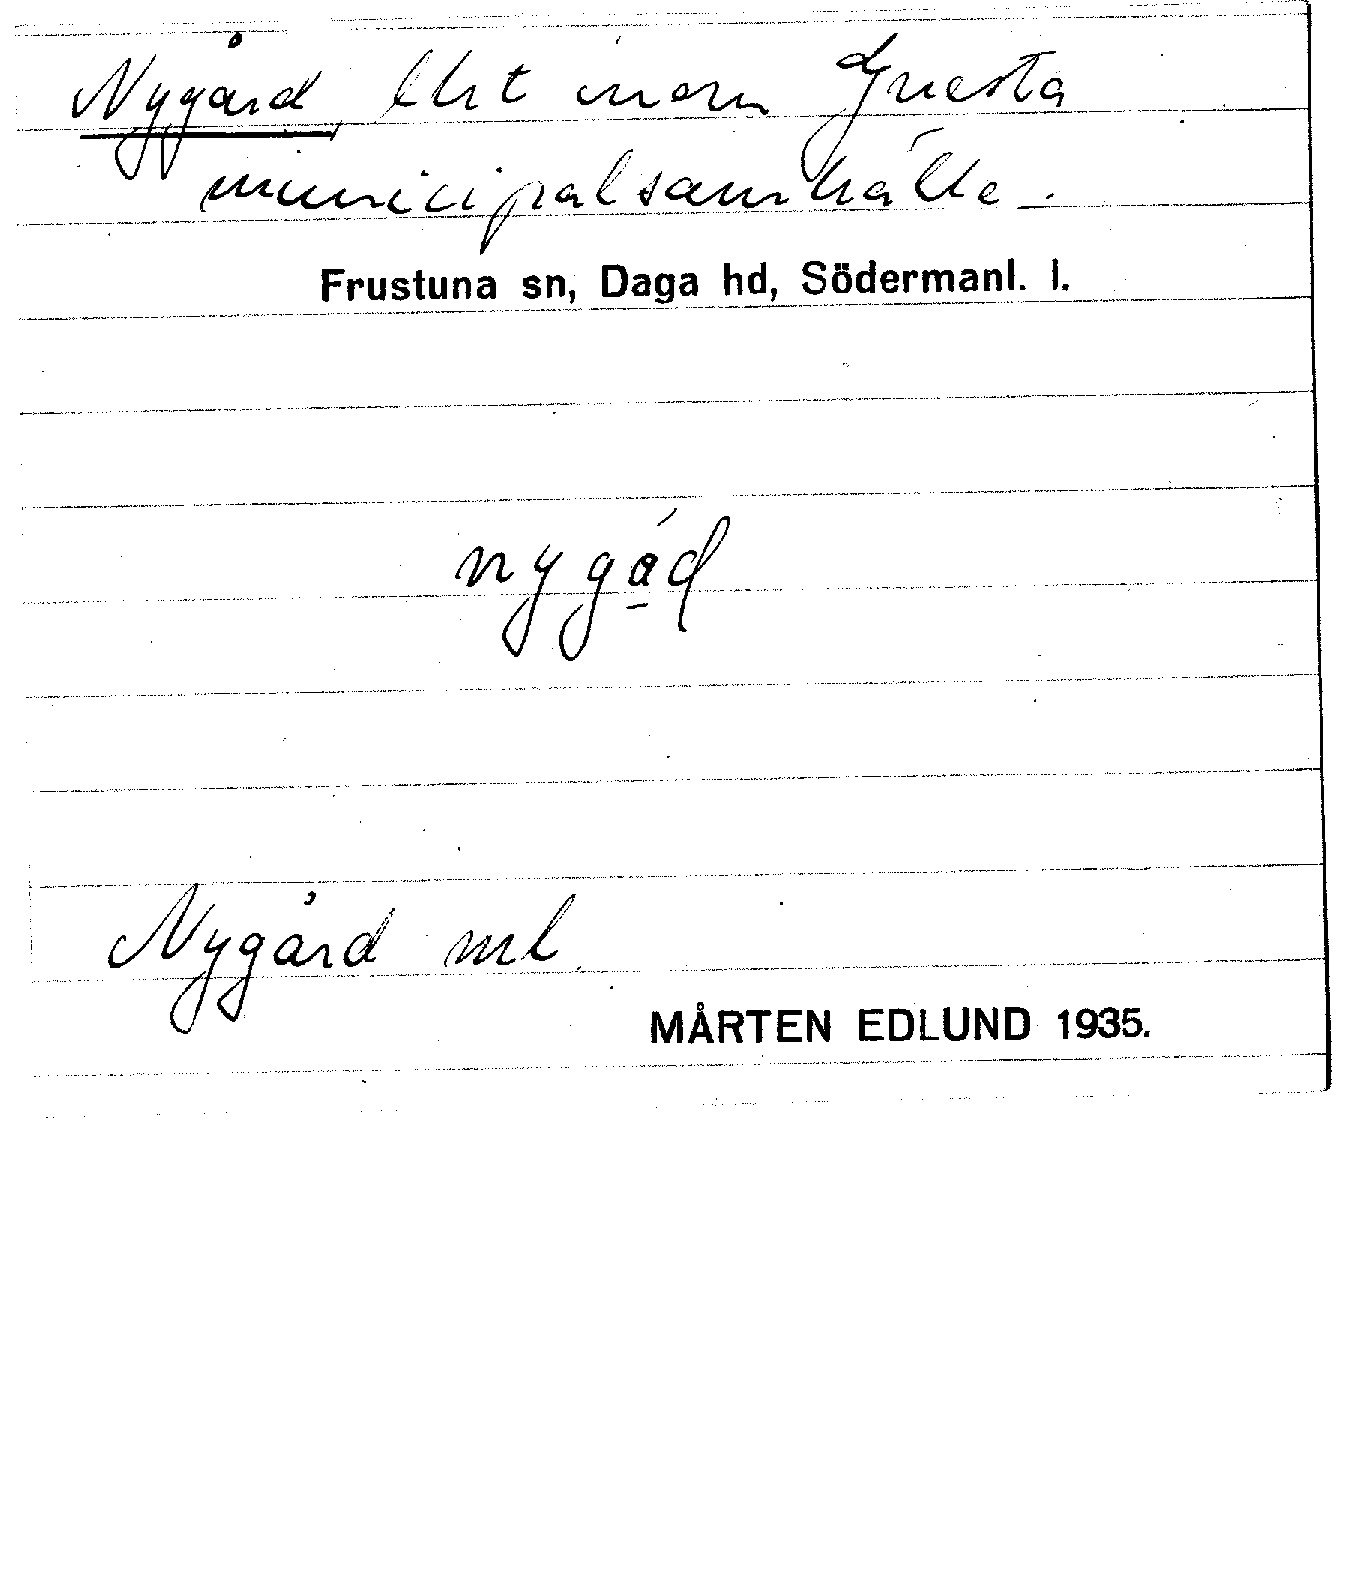 Nygård, lht inom Gnesta
municipalsamhälle.
Frustuna sn, Daga hd, Södermanl. l.
nygád
Nygård ml.
MÅRTEN EDLUND 1935.